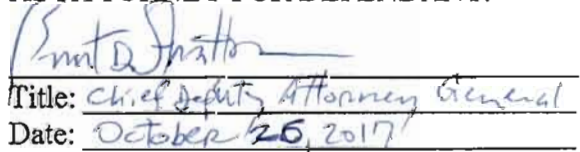 Brent D. Stratton
Title: Chief Deputy Attorney General
Date: October 26, 2017